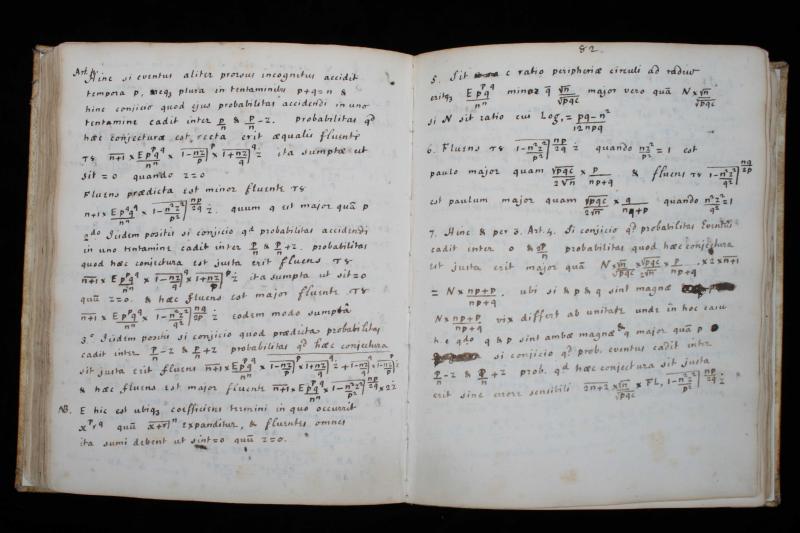 Art. 4. Hinc si eventus aliter prorsus incognitus accidit
tempora p, neq3 plura in tentaminibus p+q=n &
hinc conjicio quod ejus probabilitas accidendi in uno
tentamine cadit inter p/n & p/n - z. probabilitas qd
hæc conjectura est recta erit æqualis fluenti
n+1 × E p^p q^q / n^n × 1 - nz/p |^p × 1 + nz/q |^q ż ita sumptæ ut
sit = 0 quando z=0
Fluens prædicta est minor fluente
n+1 × E p^p q^q / n^n × 1 - n²z²/p² |^np/2q ż. quum q est major quā p
2do Iisdem positis si conjicio qd probabilitas accidendi
in uno tentamine cadit inter p/n & p/n + z. probabilitas
quod hæc conjectura est justa erit fluens
n+1 × E p^p q^q / n^n × 1 - nz/q |^q × 1 + nz/p |^p ż ita sumpta ut sit=0
quū z=0. & hæc fluens est major fluente
n+1 × E p^p q^q / n^n × 1 - n²z²/q² |^nq/2p ż eodem modo sumptâ
3.° Iisdem positis si conjicio quod prædicta probabilitas
cadit inter p/n - z & p/n + z probabilitas qd hæc conjectura
sit justa erit fluens n+1 × E p^p q^q / n^n × 1 - nz/p |^p × 1 + nz/q |^q ż + 1 - nz/q |^q × 1 + nz/p |^p ż
& hæc fluens est major fluente n+1 × E p^p q^q / n^n × 1 - n²z²/p² |^np/2q × 2ż
NB. E hic est ubiq3 coefficiens termini in quo occurrit
x^p r^q quū x+r |^n expanditur, & fluentes omnes
ita sumi debent ut sint=0 quū z=0.
82
5. Sit c ratio peripheriæ circuli ad radiū
eritq3 E p^p q^q / n^n minor q̄ √n / √pqc major vero quā N × √n / √pqc
si N sit ratio cui Log. = pq - n² / 12npq
6. Fluens 1 - n²z²/p² |^np/2q ż quando nz²/p² = 1 est
paulo major quam √pqc / 2√n × p / np+q & fluens 1 - n²z²/q² |^nq/2p
est paulum major quam √pqc / 2√n × q / nq+p quando n²z²/q² = 1
7. Hinc & per 3. Art. 4. Si conjicio qd probabilitas Eventus
cadit inter 0 & 2p/n probabilitas quod hæc conjectura
est justa erit major quā N √n / √pqc × √pqc / 2√n × p / np+q × 2 × n+1
= N × np+p / np+q. ubi si p & q sint magnæ
N × np+p / np+q vix differt ab unitate unde in hoc casu
h e qdo q & p sint ambæ magnæ & q major quā p
si conjicio qd prob. eventus cadit inter
p/n - z & p/n + z prob. qd hæc conjectura sit justa
erit sine errore sensibili 2n+2 × √n / √pqc × FL, 1 - n²z²/p² |^np/2q ż